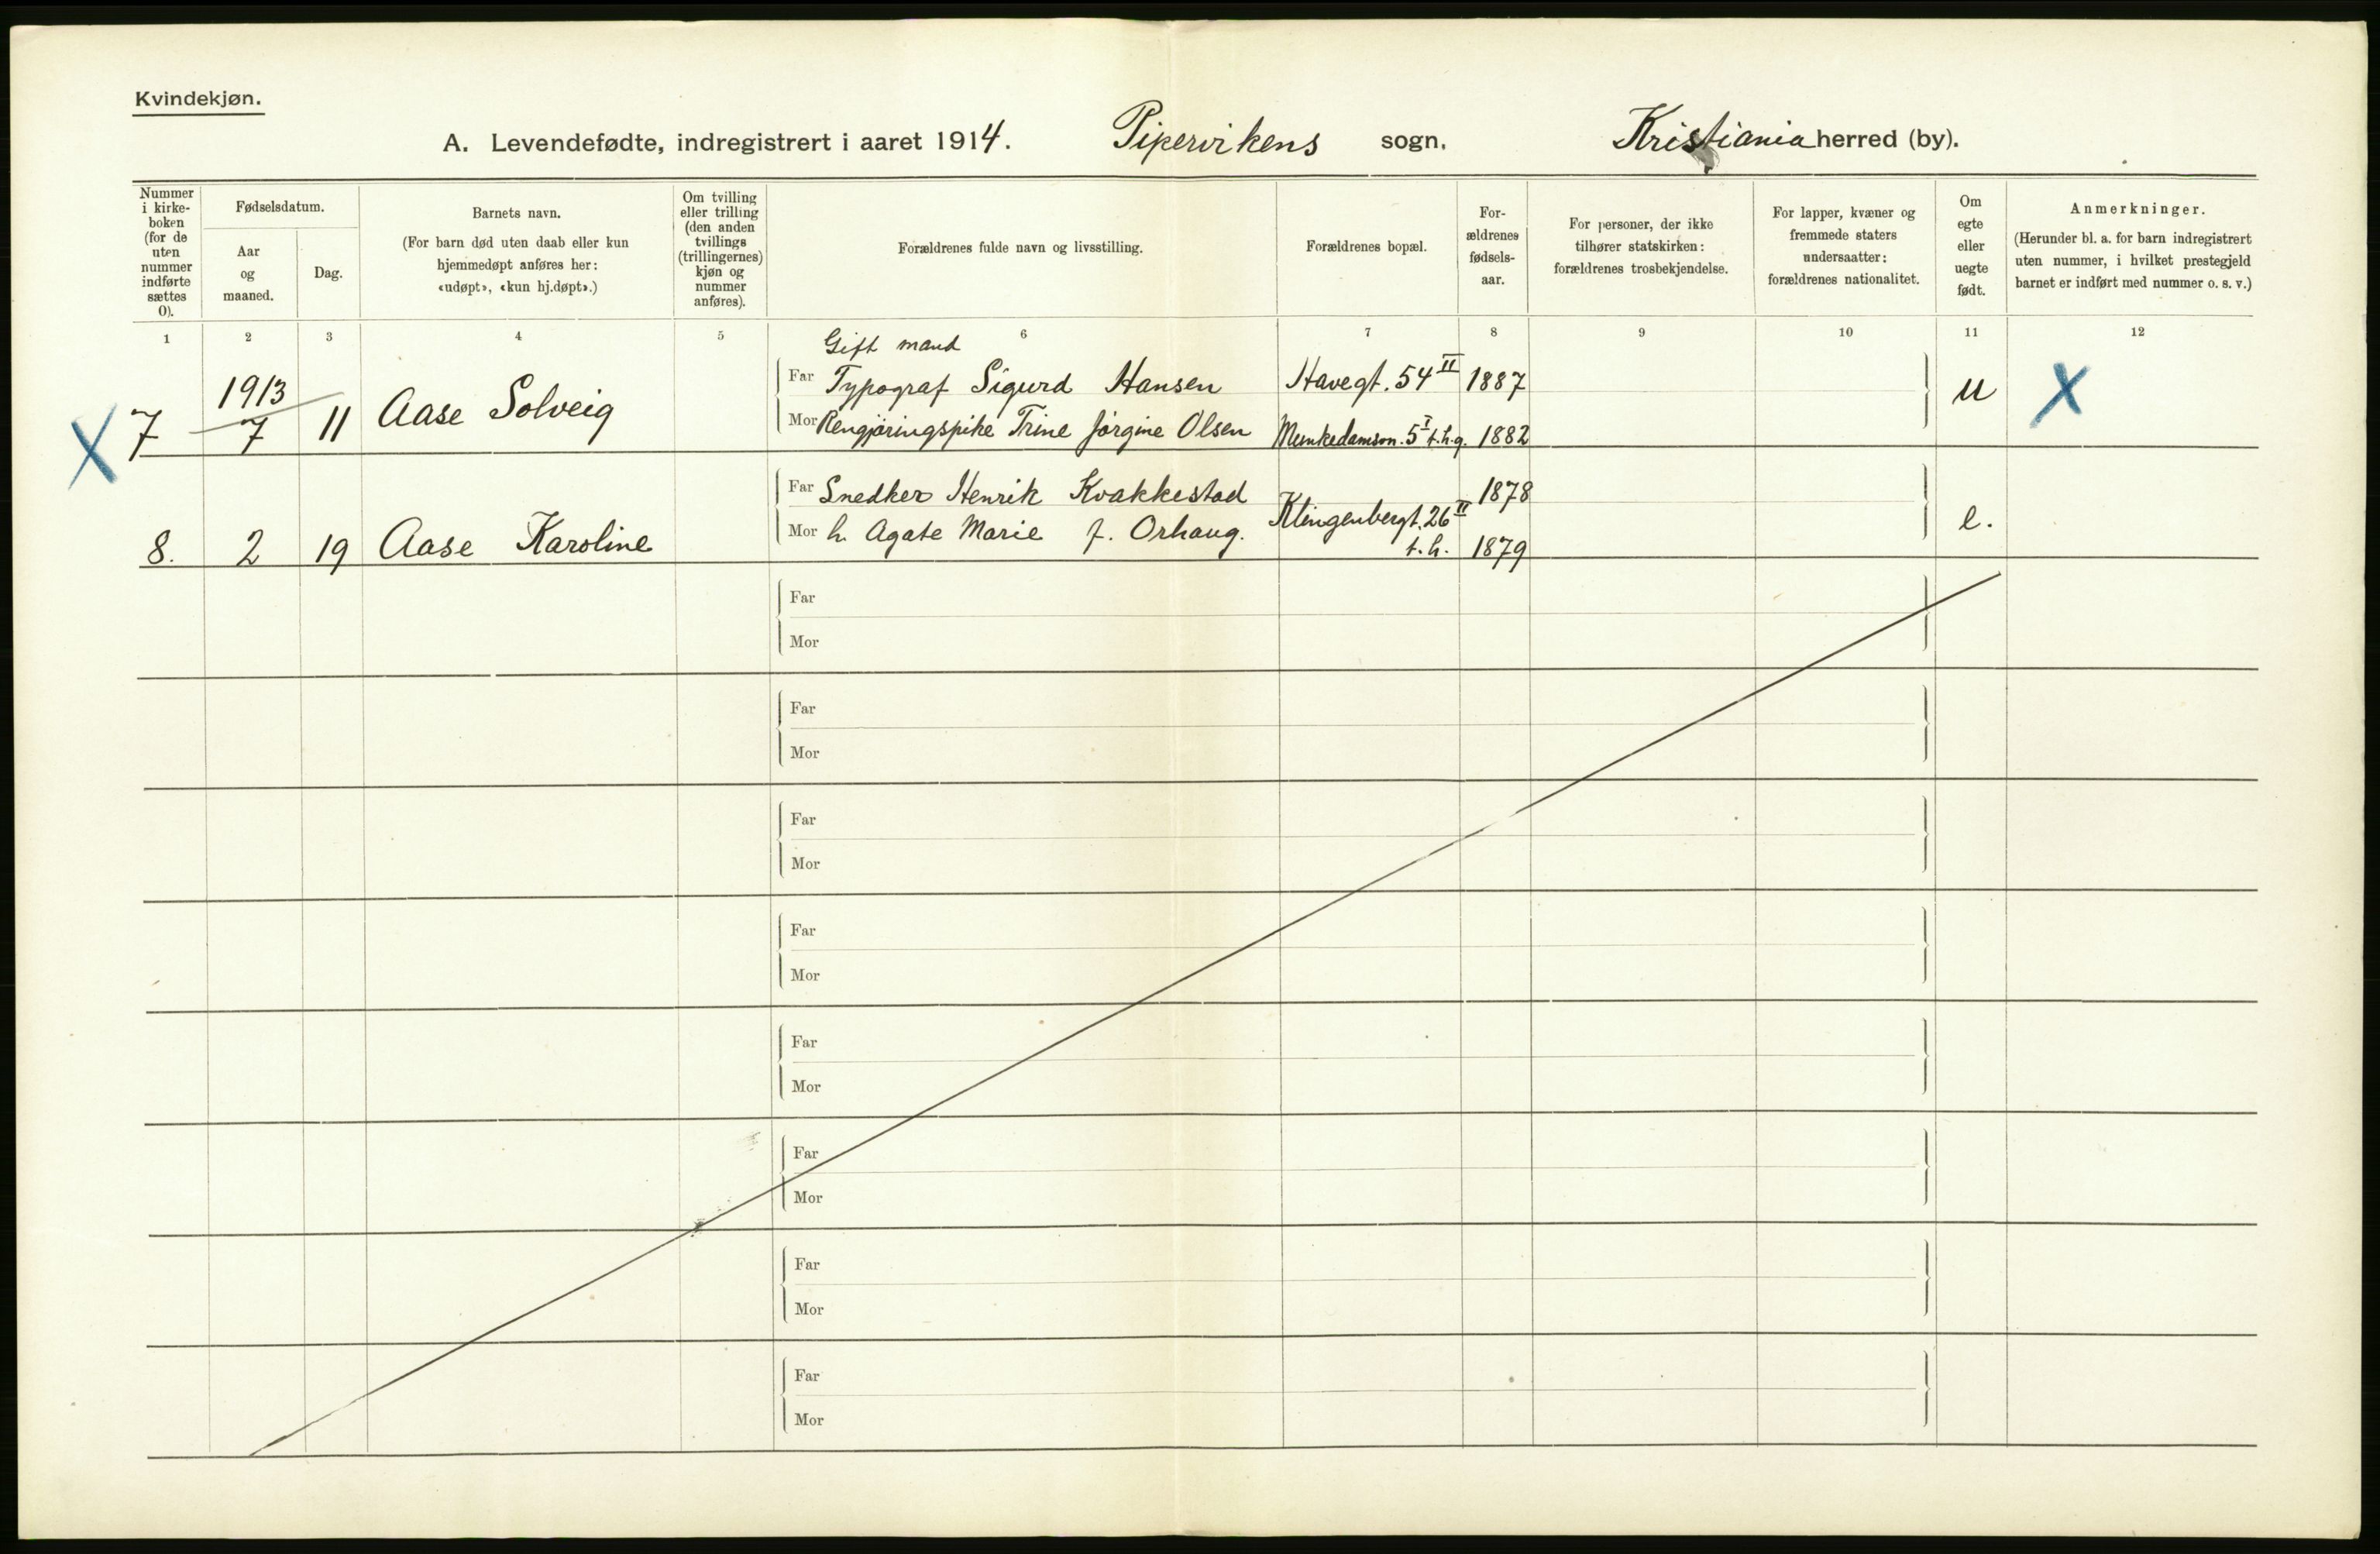 Kvindekjøn.
A. Levendefødte, indregistrert i aaret 1914. Pipervikens sogn, Kristiania herred (by).
Nummer i kirke-boken (for de uten nummer indførte sættes 0).
Fødselsdatum.
Aar og maaned.
Dag.
Barnets navn.
(For barn død uten daab eller kun hjemmedøpt anføres her: «udøpt», «kun hj.døpt».)
Om tvilling eller trilling (den anden tvillings (trillingernes) kjøn og nummer anføres).
Forældrenes fulde navn og livsstilling.
Forældrenes bopæl.
For-ældrenes fødsels-aar.
For personer, der ikke tilhører statskirken: forældrenes trosbekjendelse.
For lapper, kvæner og fremmede staters undersaatter: forældrenes nationalitet.
Om egte eller uegte født.
Anmerkninger.
(Herunder bl. a. for barn indregistrert uten nummer, i hvilket prestegjeld barnet er indført med nummer o. s. v.)
1 2 3 4 5 6 7 8 9 10 11 12
Gift mand
X 7 1913 7 11 Aase Solveig
Far Typograf Sigurd Hansen Havegt. 54 II 1887 u X
Mor Rengjøringspike Trine Jørgine Olsen Munkedamsvn. 5 I t.h.g. 1882
8. 2 19 Aase Karoline
Far Snedker Henrik Kvakkestad Klingenbergt. 26 II 1878 e.
Mor h. Agate Marie f. Orhaug. t.h. 1879
Far
Mor
Far
Mor
Far
Mor
Far
Mor
Far
Mor
Far
Mor
Far
Mor
Far
Mor